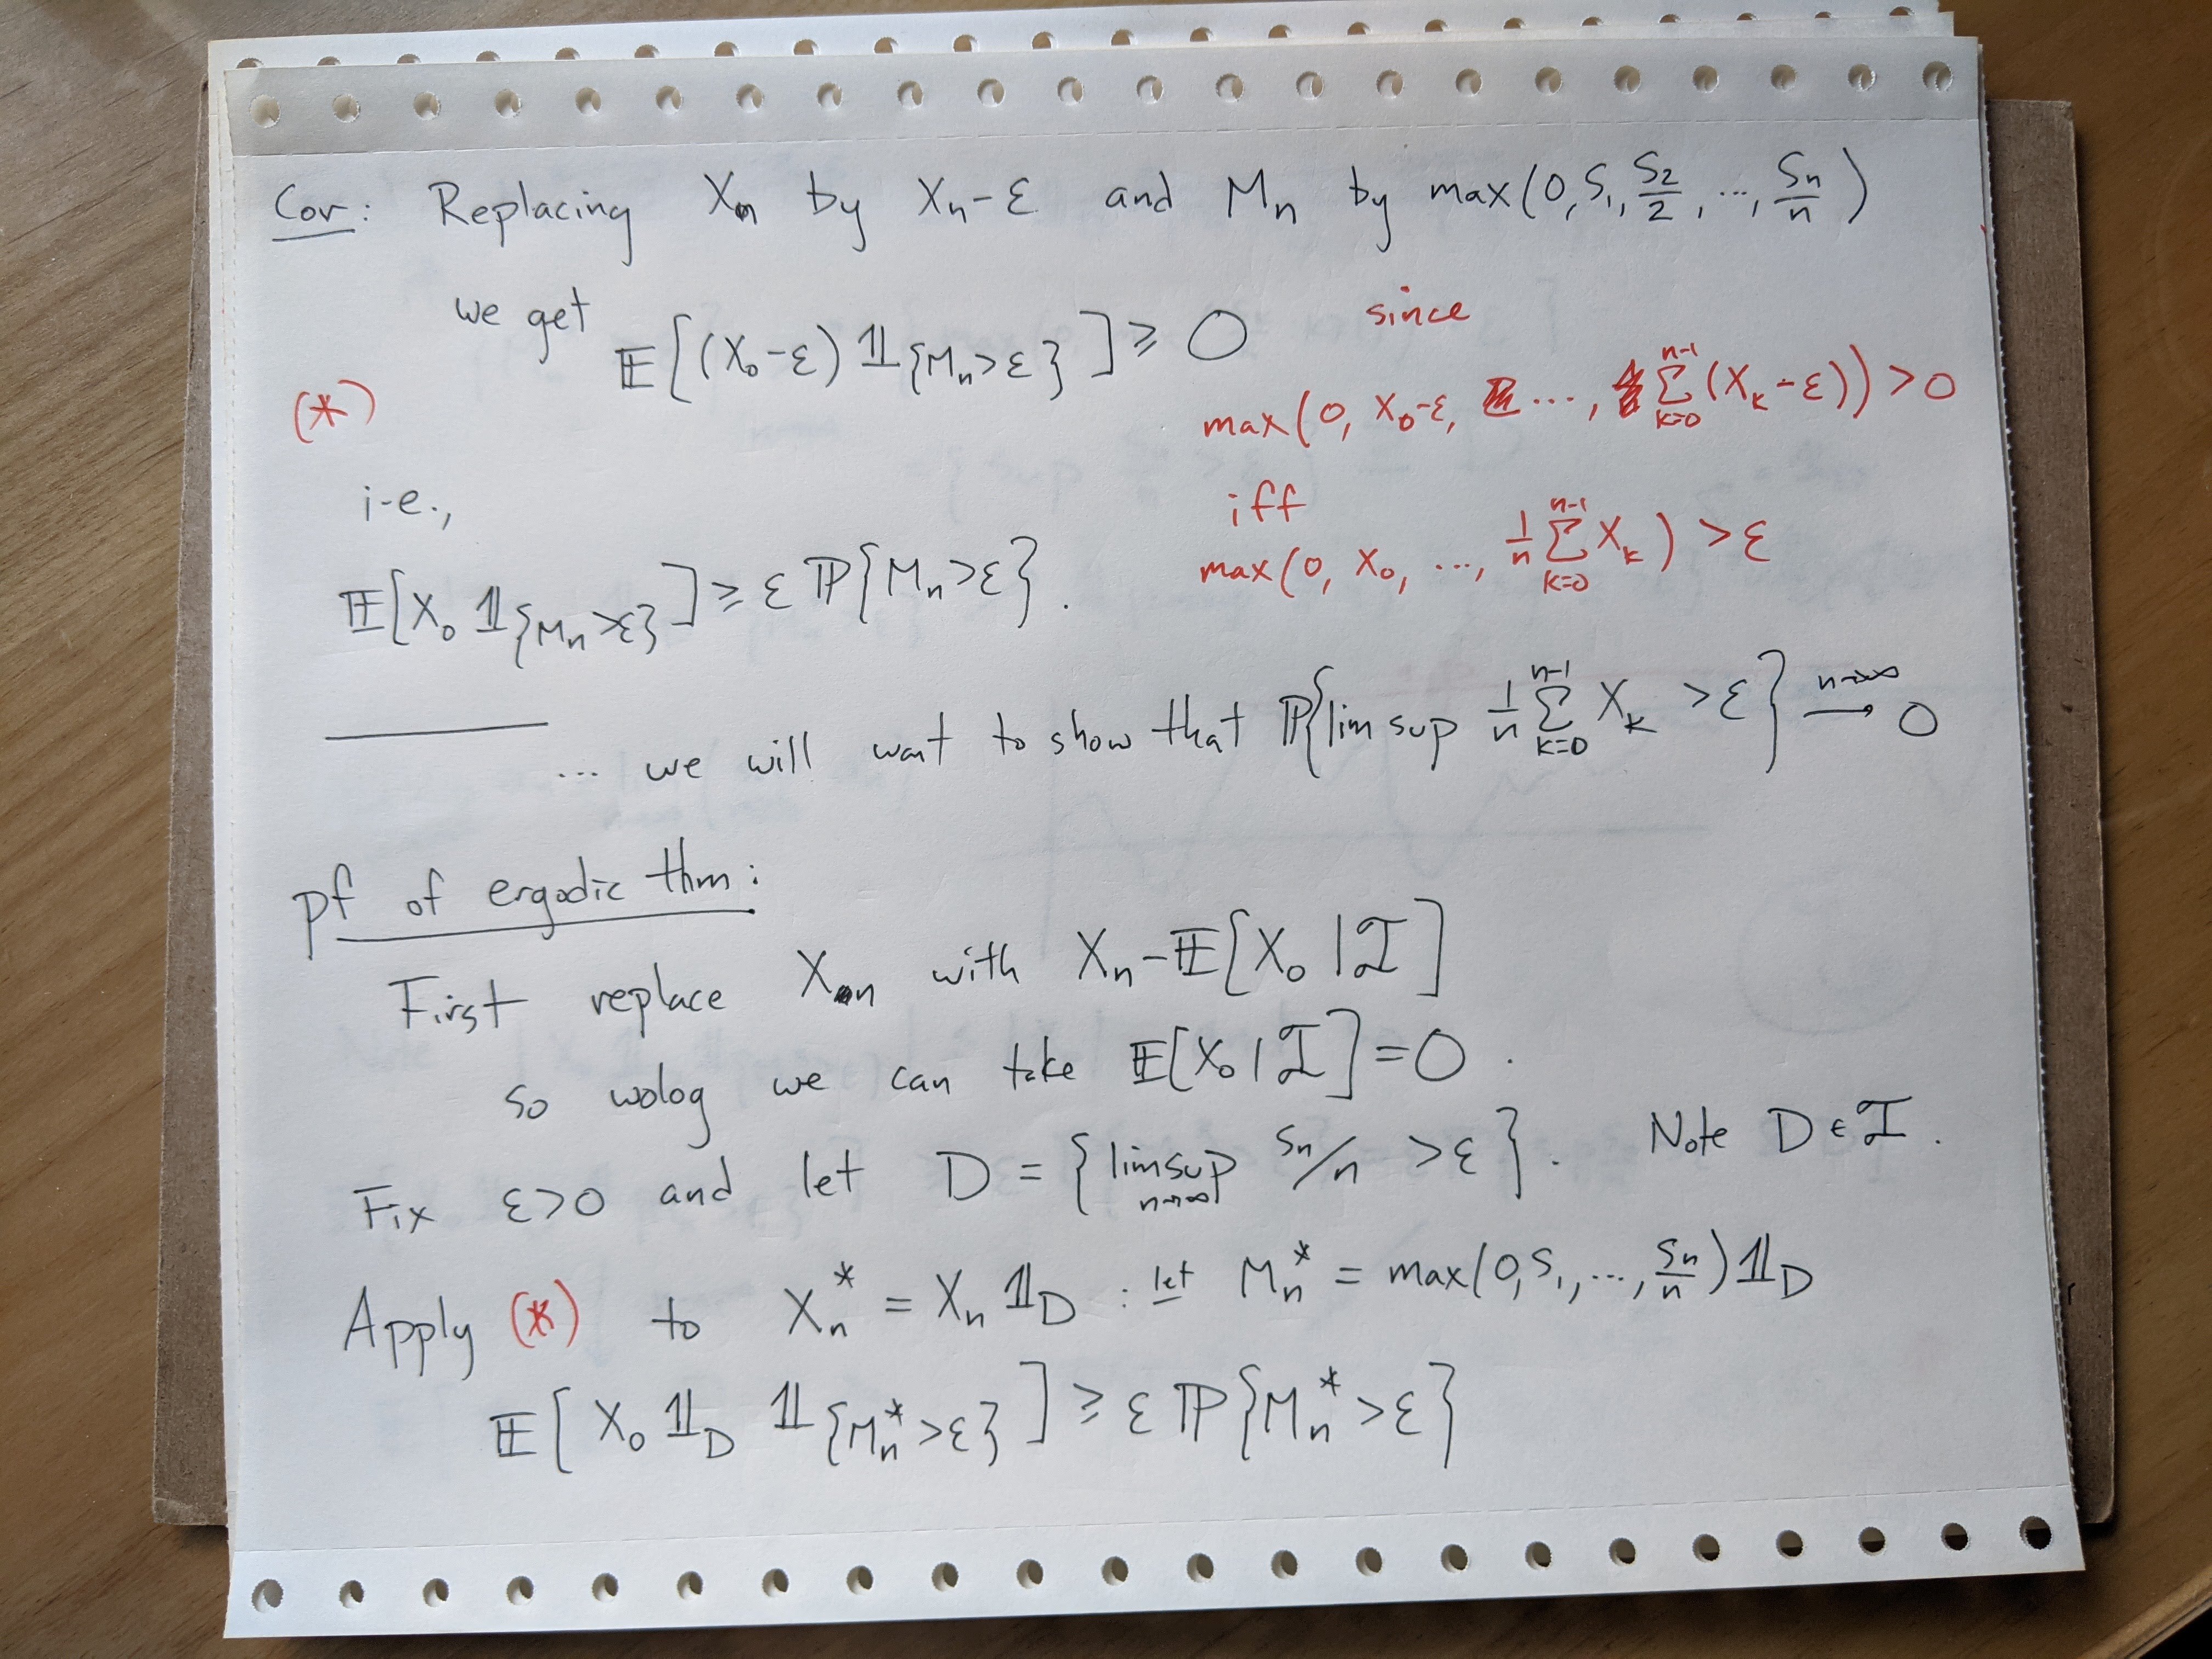 Cor: Replacing Xₙ by Xₙ-ε and Mₙ by max(0, S₁, S₂/2, ..., Sₙ/n)
we get 𝔼[(X₀-ε) 𝟙_{Mₙ>ε}] ≥ 0 since
(*)
max(0, X₀-ε, ..., ∑_{k=0}^{n-1} (X_k-ε)) > 0
i.e.,
iff
max(0, X₀, ..., 1/n ∑_{k=0}^{n-1} X_k) > ε
𝔼[X₀ 𝟙_{Mₙ>ε}] ≥ ε ℙ{Mₙ>ε}.
... we will want to show that ℙ{lim sup 1/n ∑_{k=0}^{n-1} X_k > ε} →^{n→∞} 0
pf of ergodic thm:
First replace Xₙ with Xₙ-𝔼[X₀|ℐ]
so wolog we can take 𝔼[X₀|ℐ]=0.
Fix ε>0 and let D = {limsup_{n→∞} Sₙ/n > ε}. Note D ∈ ℐ.
Apply (*) to Xₙ* = Xₙ 𝟙_D : let Mₙ* = max(0, S₁, ..., Sₙ/n) 𝟙_D
𝔼[X₀ 𝟙_D 𝟙_{Mₙ*>ε}] ≥ ε ℙ{Mₙ*>ε}